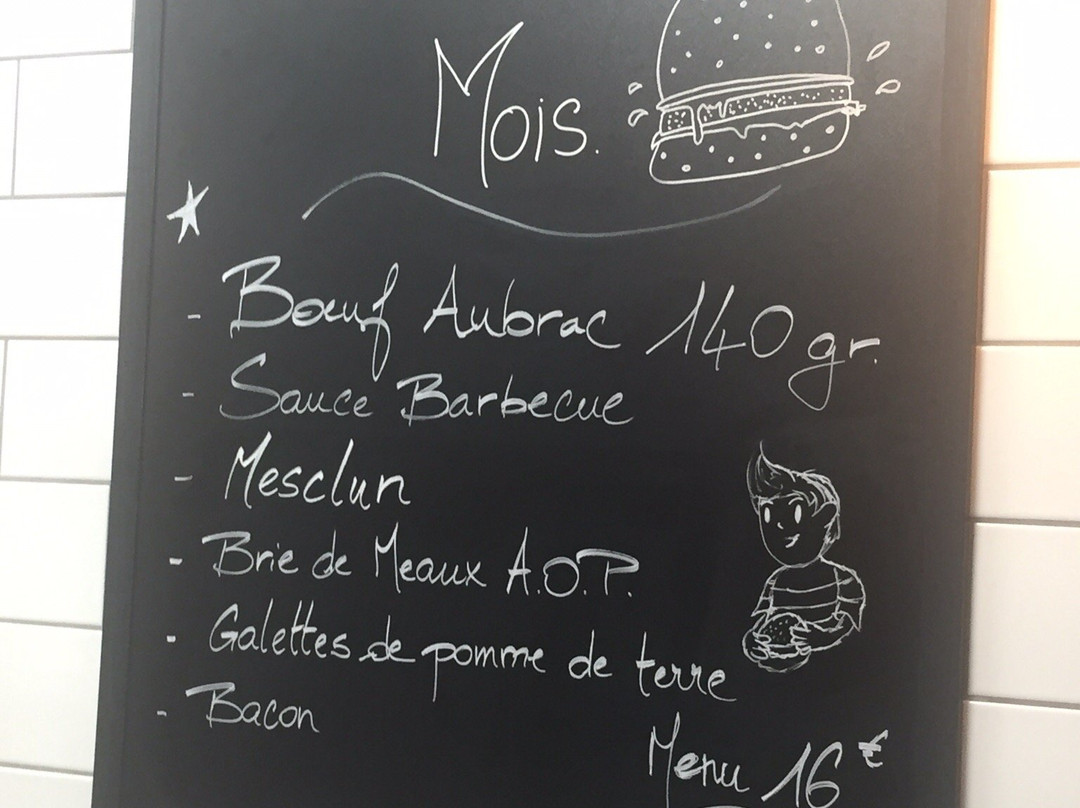 Mois.
- Bœuf Aubrac 140 gr.
- Sauce Barbecue
- Mesclun
- Brie de Meaux A.O.P.
- Galettes de pomme de terre
- Bacon
Menu 16€